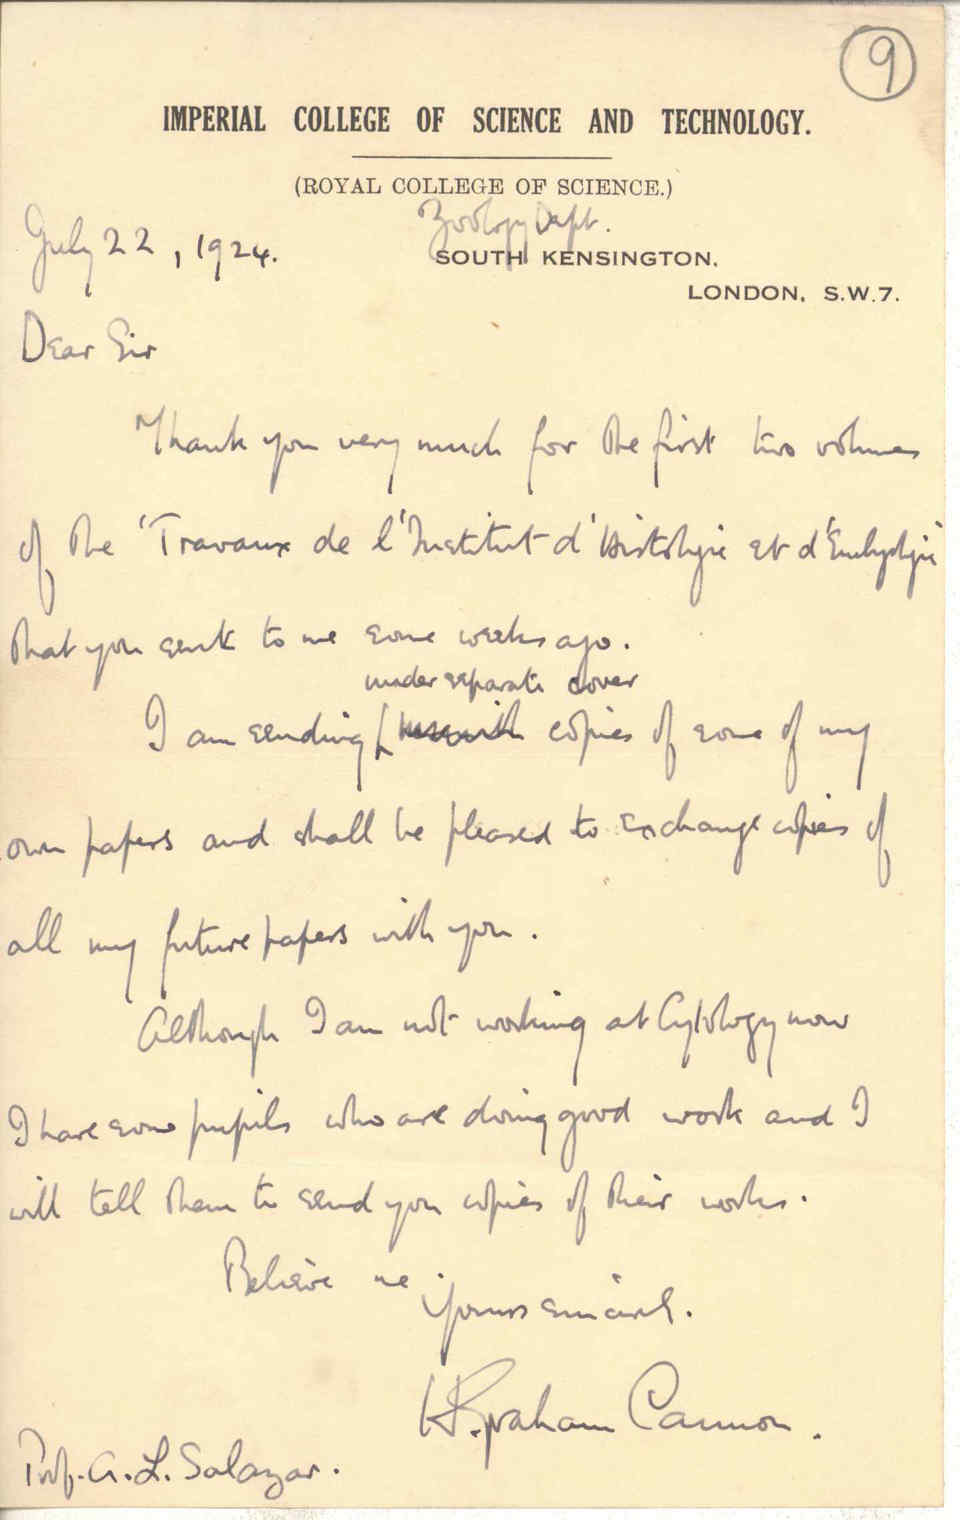 9
IMPERIAL COLLEGE OF SCIENCE AND TECHNOLOGY.
(ROYAL COLLEGE OF SCIENCE.)
Zoology Dept.
July 22, 1924.
SOUTH KENSINGTON,
LONDON, S.W.7.
Dear Sir
Thank you very much for the first two volumes
of the 'Travaux de l'Institut d'Histologie et d'Embryologie
that you sent to me some weeks ago.
under separate cover
I am sending herewith copies of some of my
own papers and shall be pleased to exchange copies of
all my future papers with you.
Although I am not working at Cytology now
I have some pupils who are doing good work and I
will tell them to send you copies of their works.
Believe me
Yours sincerel.
H. Graham Cannon.
Prof. A. L. Salazar.